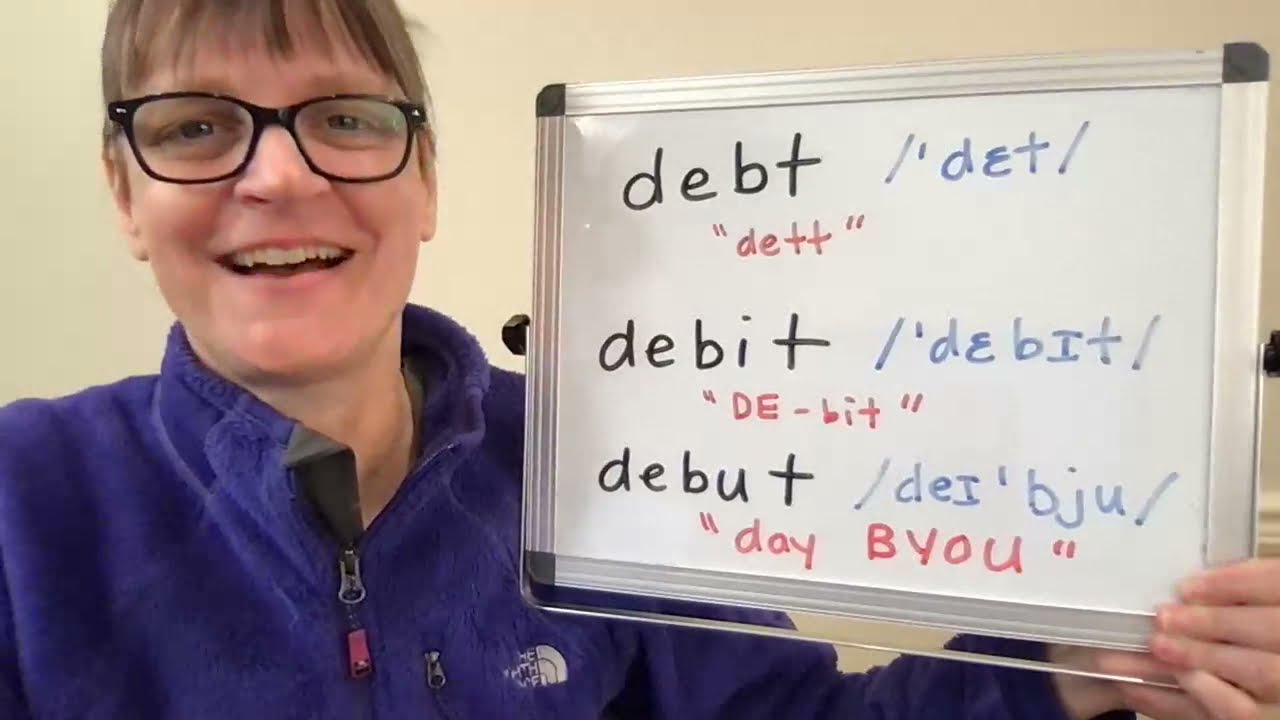 debt /ˈdɛt/
"dett"
debit /ˈdɛbɪt/
"DE-bit"
debut /deɪˈbju/
"day BYOU"
THE
NORTH
FACE